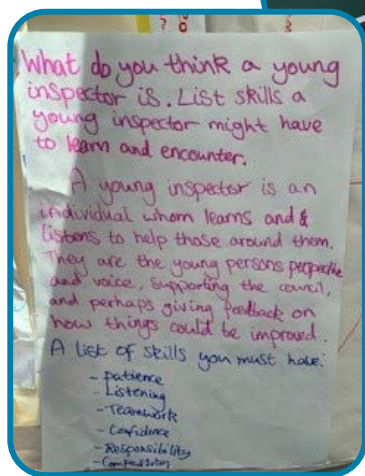 What do you think a young
inspector is. List skills a
young inspector might have
to learn and encounter.
A young inspector is an
individual whom learns and &
listens to help those around them.
They are the young persons perspective
and voice, supporting the council,
and perhaps giving feedback on
how things could be improved.
A list of skills you must have:
- Patience
- Listening
- Teamwork
- Confidence
- Responsibility
- Compassion